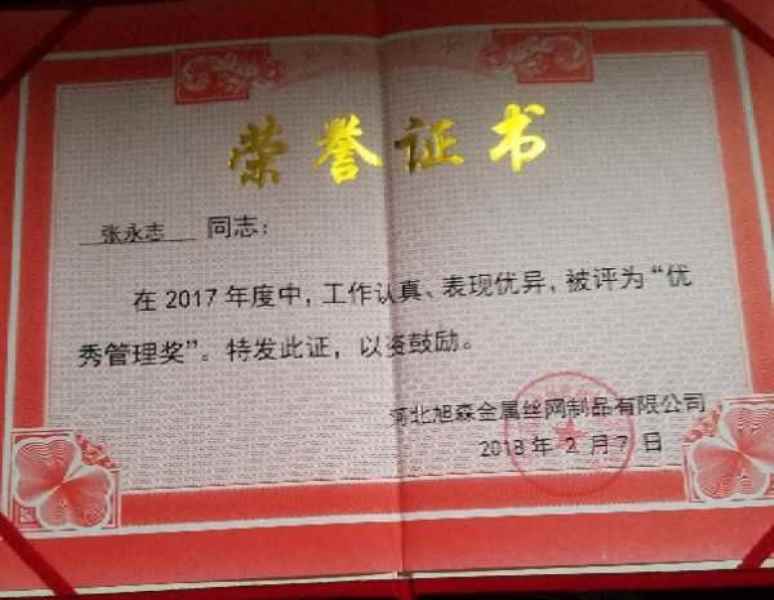 荣誉证书
张永志 同志：
在 2017 年度中，工作认真、表现优异，被评为“优
秀管理奖”。特发此证，以资鼓励。
河北旭森金属丝网制品有限公司
2018 年 2 月 7 日